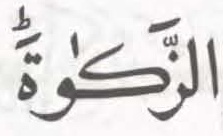 الزَّكٰوةَؕ